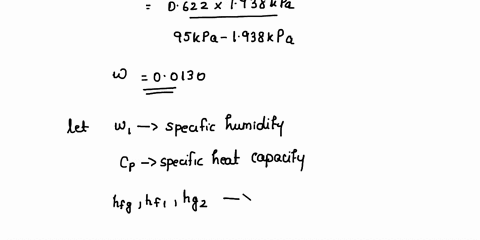 = 0.622 x 1.938 kPa
95kPa - 1.938 kPa
ω = 0.0130
let ω₁ -> specific humidity
Cp -> specific heat capacity
hfg, hf1, hg2 ->